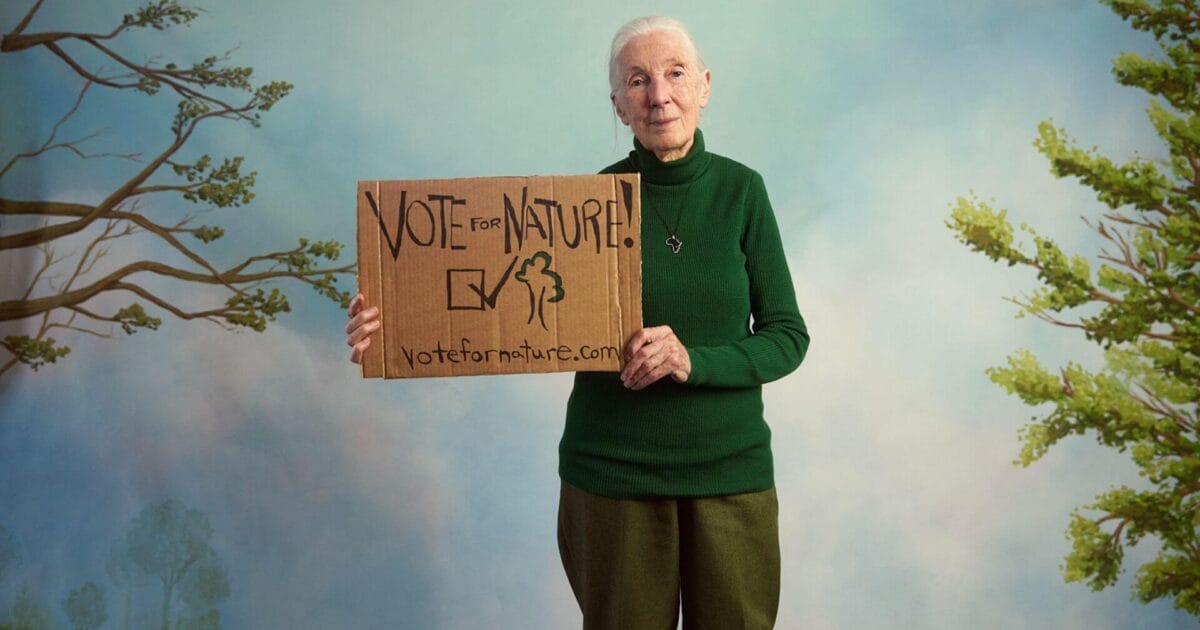 VOTE FOR NATURE!
votefornature.com